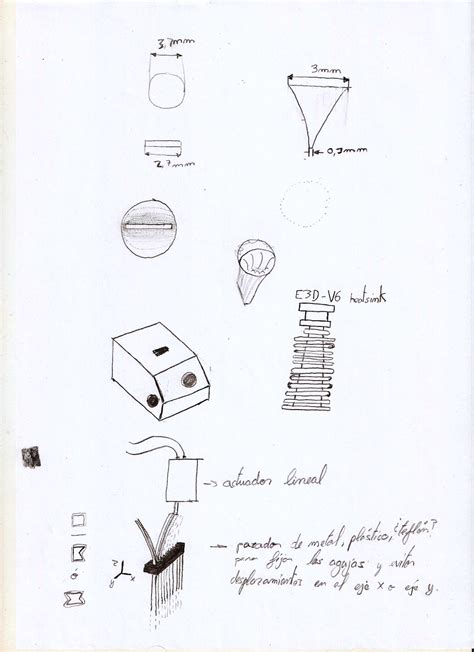 3,7mm
3mm
0,3mm
2,7mm
E3D-V6 heatsink
→ actuador lineal
→ pasador de metal, plástico, ¿teflón?
para fijar las agujas y evitar
desplazamientos en el eje x o eje y.
z
x
y
ó